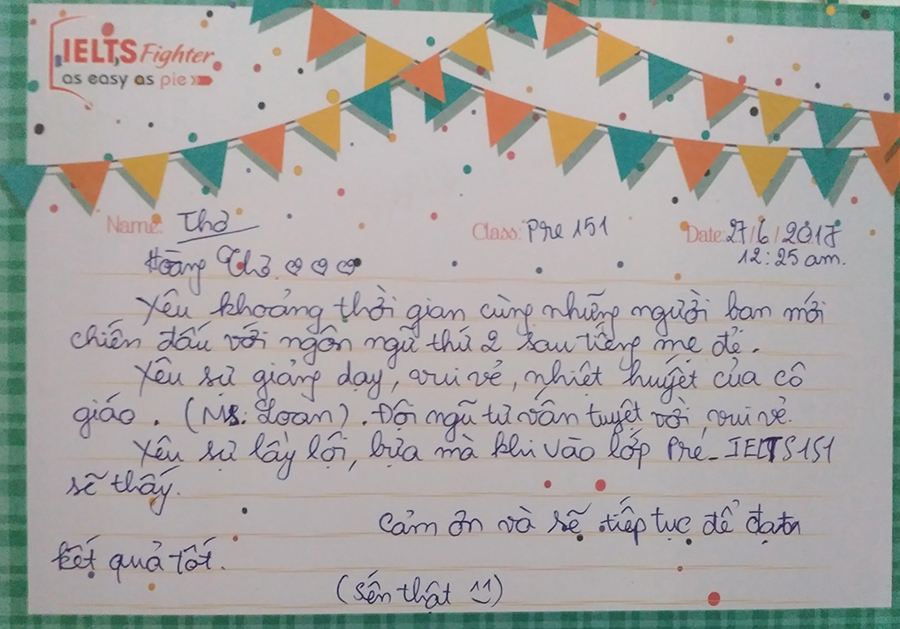 IELTS Fighter
as easy as pie
Name: Thơ
Class: Pre 151
Date: 27/6/2017
12:25 am.
Hoàng Thơ
Yêu khoảng thời gian cùng những người bạn mới
chiến đấu với ngôn ngữ thứ 2 sau tiếng mẹ đẻ.
Yêu sự giảng dạy, vui vẻ, nhiệt huyết của cô
giáo. (Ms. Loan). Đội ngũ tư vấn tuyệt vời, vui vẻ.
Yêu sự lầy lội, bựa mà khi vào lớp Pre-IELTS 151
sẽ thấy.
Cảm ơn và sẽ tiếp tục để đạt
kết quả tốt.
(sến thật ^^)